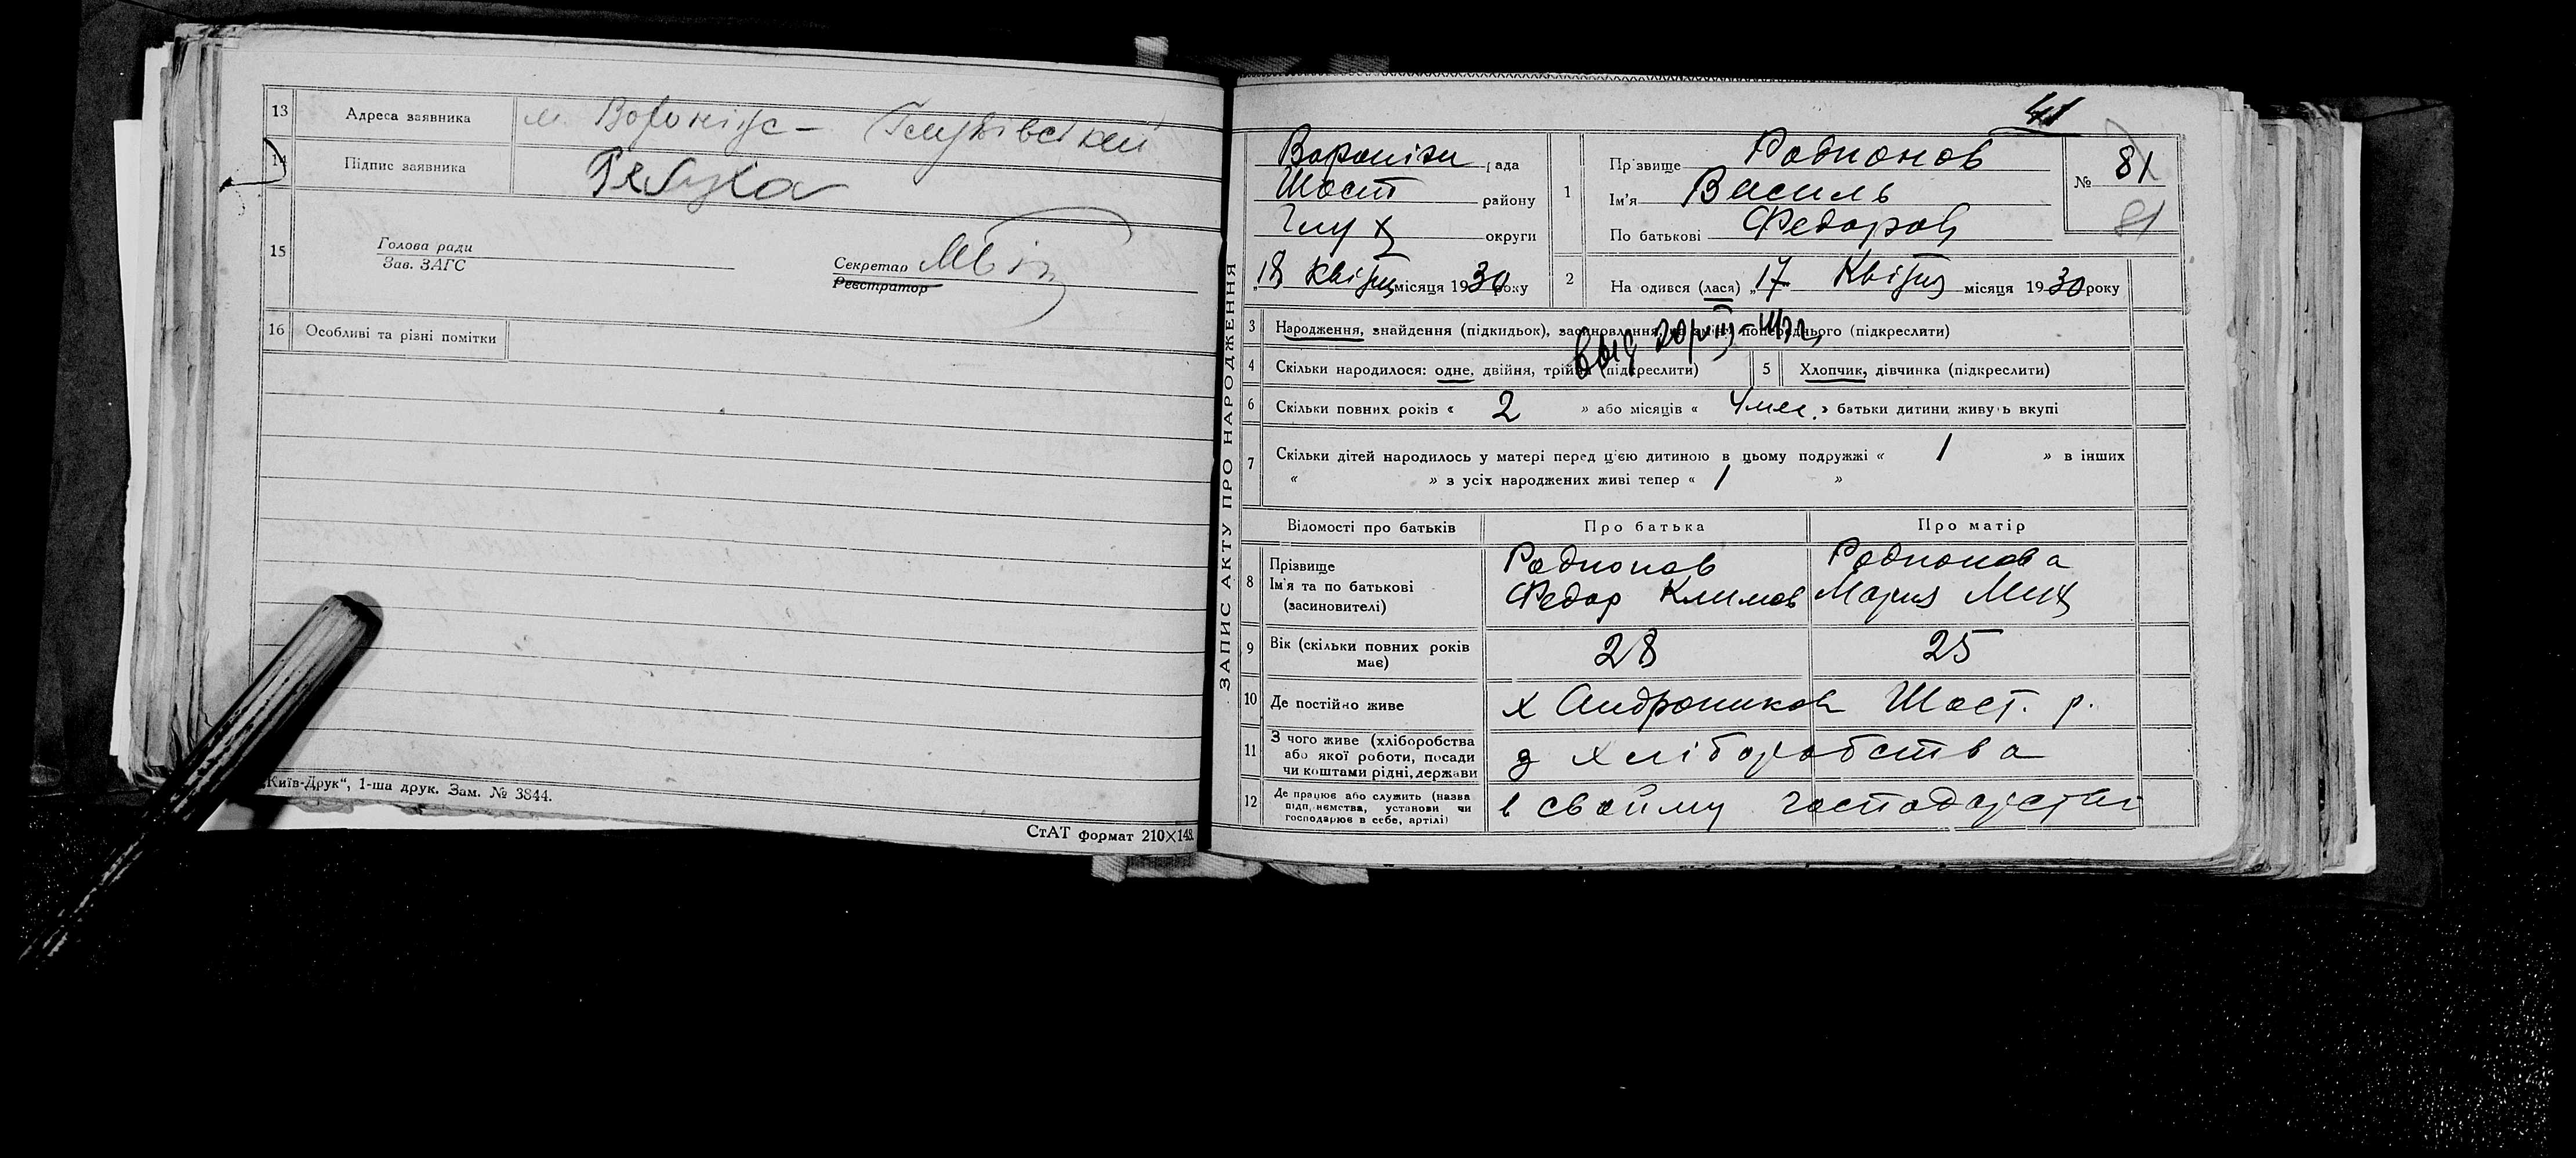 13 Адреса заявника м. Вороніж – Глухівської
14 Підпис заявника Рябуха
15 Голова ради
Зав. ЗАГС
Секретар
Реєстратор
16 Особливі та різні помітки
„Київ-Друк“, 1-ша друк. Зам. № 3844.
СтАТ формат 210×148.
41
ЗАПИС АКТУ ПРО НАРОДЖЕННЯ
Вороніж рада
Шост району
Глух округи
„18 Квітня місяця 1930 року
1 Прізвище Родионов
Ім'я Василь
По батькові Федоров
№ 81
81
2 Народився (лася) „17 Квітня місяця 1930 року
3 Народження, знайдення (підкидьок), засиновлення, попереднього (підкреслити)
4 Скільки народилося: одне, двійня, трійня (підкреслити)
5 Хлопчик, дівчинка (підкреслити)
6 Скільки повних років « 2 » або місяців « 4 мес. » батьки дитини живуть вкупі
7 Скільки дітей народилось у матері перед цією дитиною в цьому подружжі « 1 » в інших
« » з усіх народжених живі тепер « 1 »
Відомості про батьків Про батька Про матір
8 Прізвище Родионов Родионова
Ім'я та по батькові Федор Климов Мария Мих
(засиновителі)
9 Вік (скільки повних років має) 28 25
10 Де постійно живе х Андроников Шост. р.
11 З чого живе (хліборобства
або якої роботи, посади
чи коштами рідні, держави з хліборобства
12 Де працює або служить (назва
підприємства, установи чи
господарює в себе, артілі) в своїму господарстві